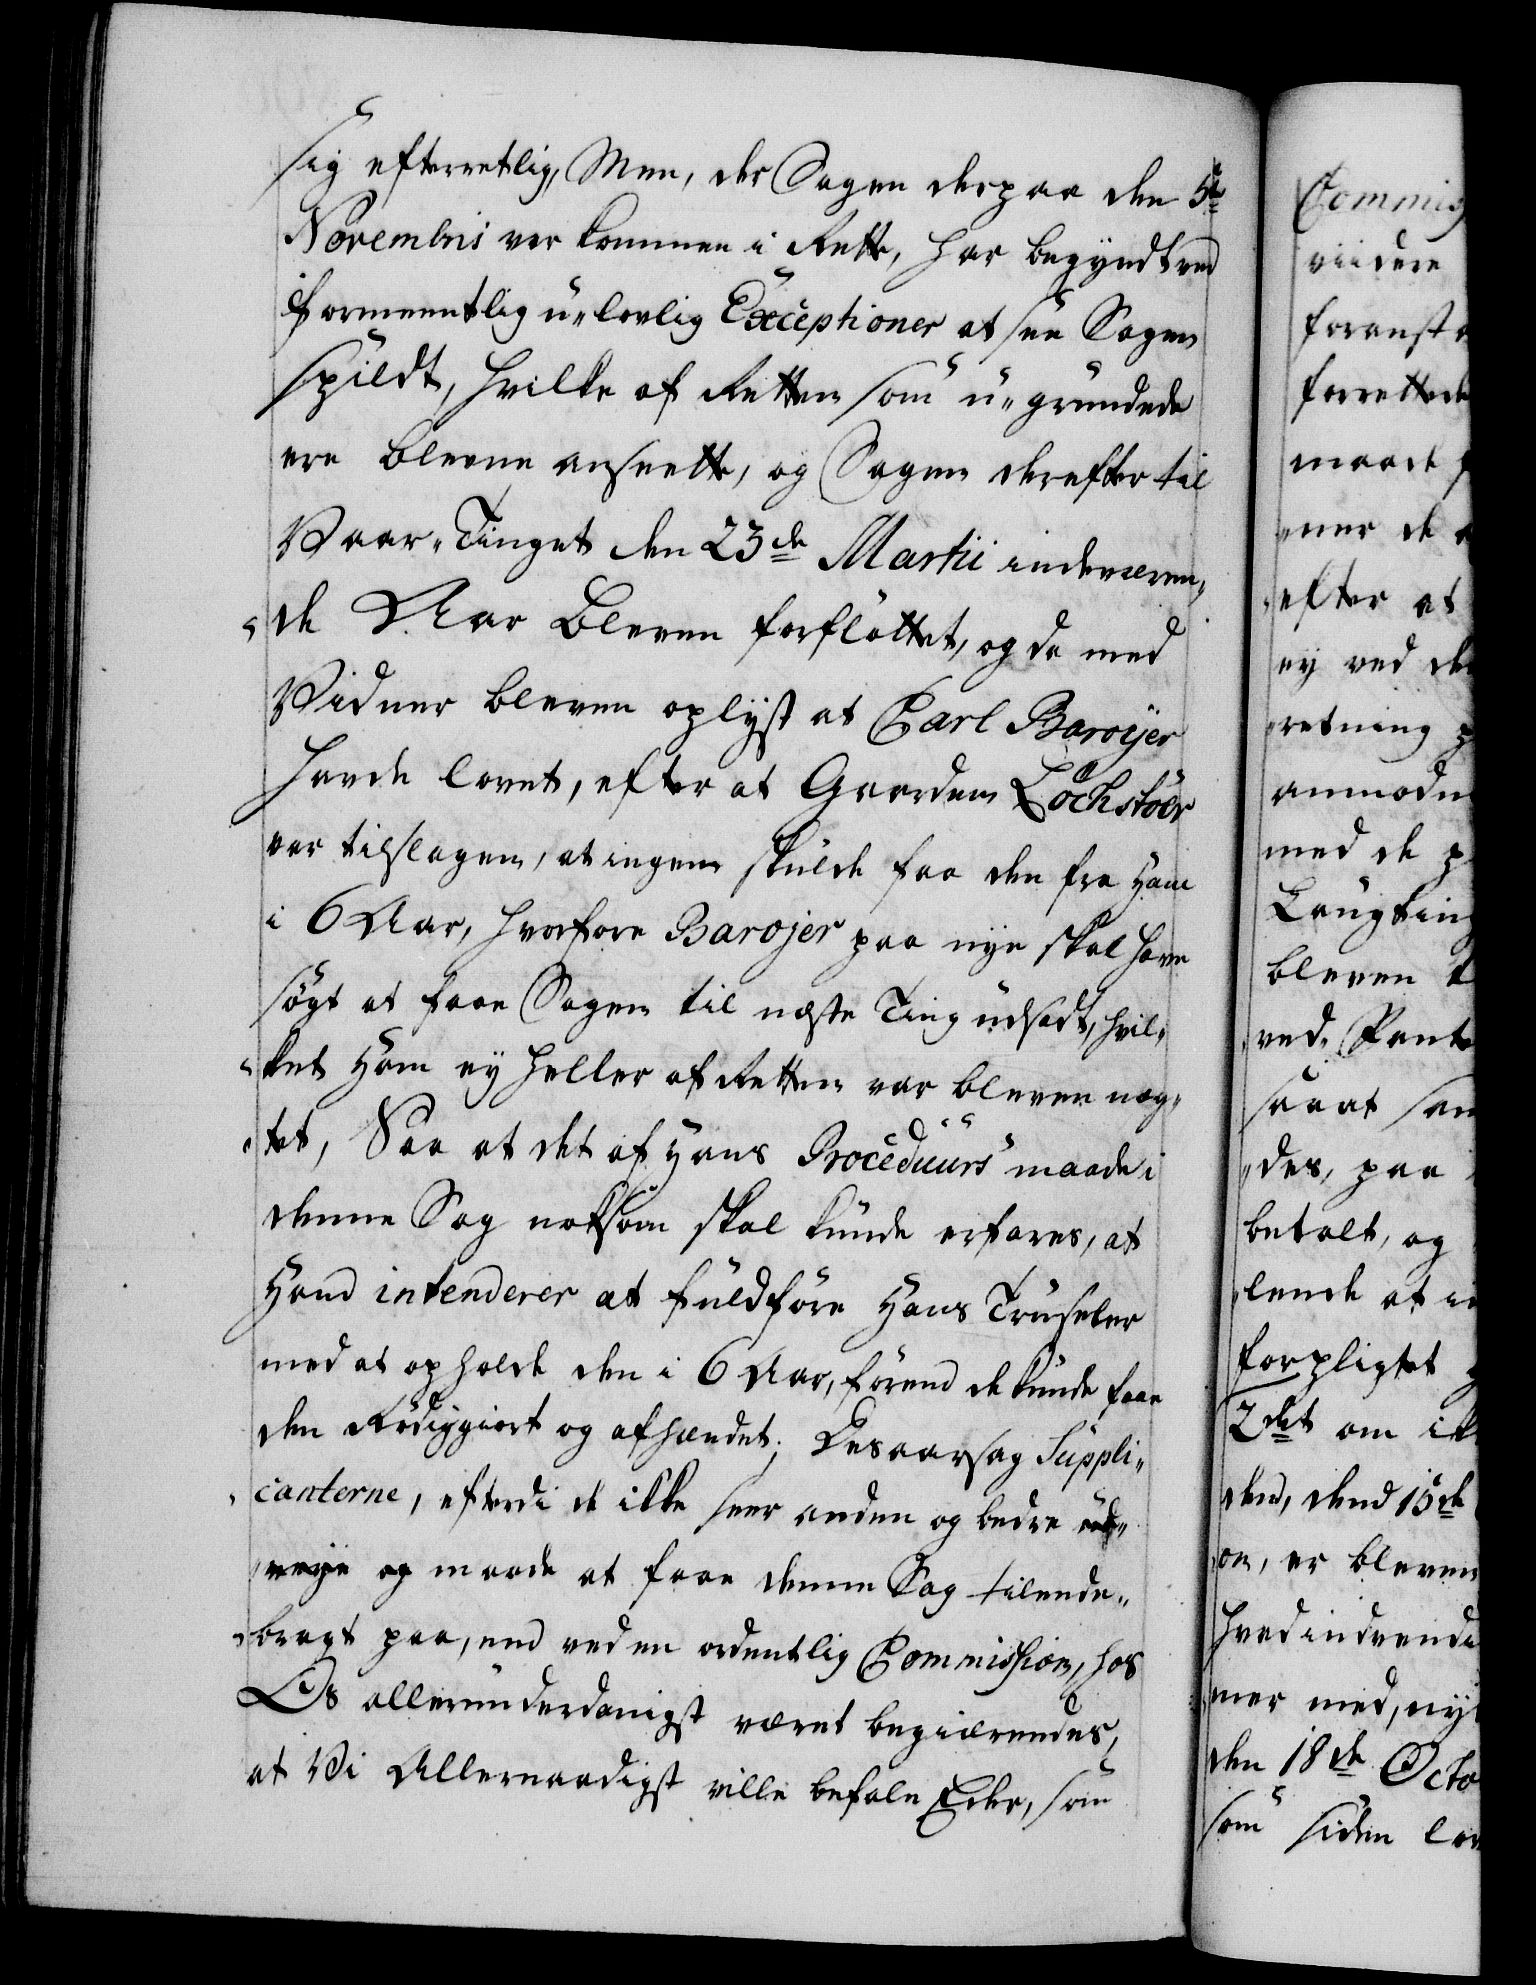 sig efterretlig, Men, der Sagen derpaa den 5te
Novembris var kommen i Rette, har begyndt ved
formeentlig u-lovlig Exceptioner at see Sagen
spildt, hvilke af Retten som u-grundede
ere blevne ansette, og Sagen derefter til
Vaar-Tinget den 23de Martii indeværen-
-de Aar bleven forfløttet, og da med
Vidner bleven oplyst at Carl Barojer
havde lovet, efter at Gaarden Lochstöer
var tilslagen, at ingen skulde faa den fra ham
i 6 Aar, hvorfore Barojer paa nye skal have
søgt at faae Sagen til næste Ting udsadt, hvil-
-ket ham ey heller af Retten var bleven næg-
-tet, Saa at det af hans Proceduurs maade i
denne Sag noksom skal kunde erfares, at
hand intenderer at fuldføre hans Truseler
med at opholde den i 6 Aar, førend de kunde faae
den Rødiggiort og afhændet; Desaarsag Suppli-
-canterne, efterdi de ikke seer anden og bedre ud-
-veye og maade at faae denne Sag tilende-
-bragt paa, end ved en ordentlig Commission, hos
Os allerunderdanigst været begiærendes,
at Vi Allernaadigst ville befale Eder, som
Commis
viidere
foranst
forrettede
maade
-ner de
-efter at
ey ved de
-retning
anmodn
med de
Laugting
bleven
-ved Pant
saaat
-des, paa
betalt, og
-lende at
forpligtet
2det om
den, dend 15de
-on, er bleven
hved indvendi
-ner med,
den 18de Octo
som siden